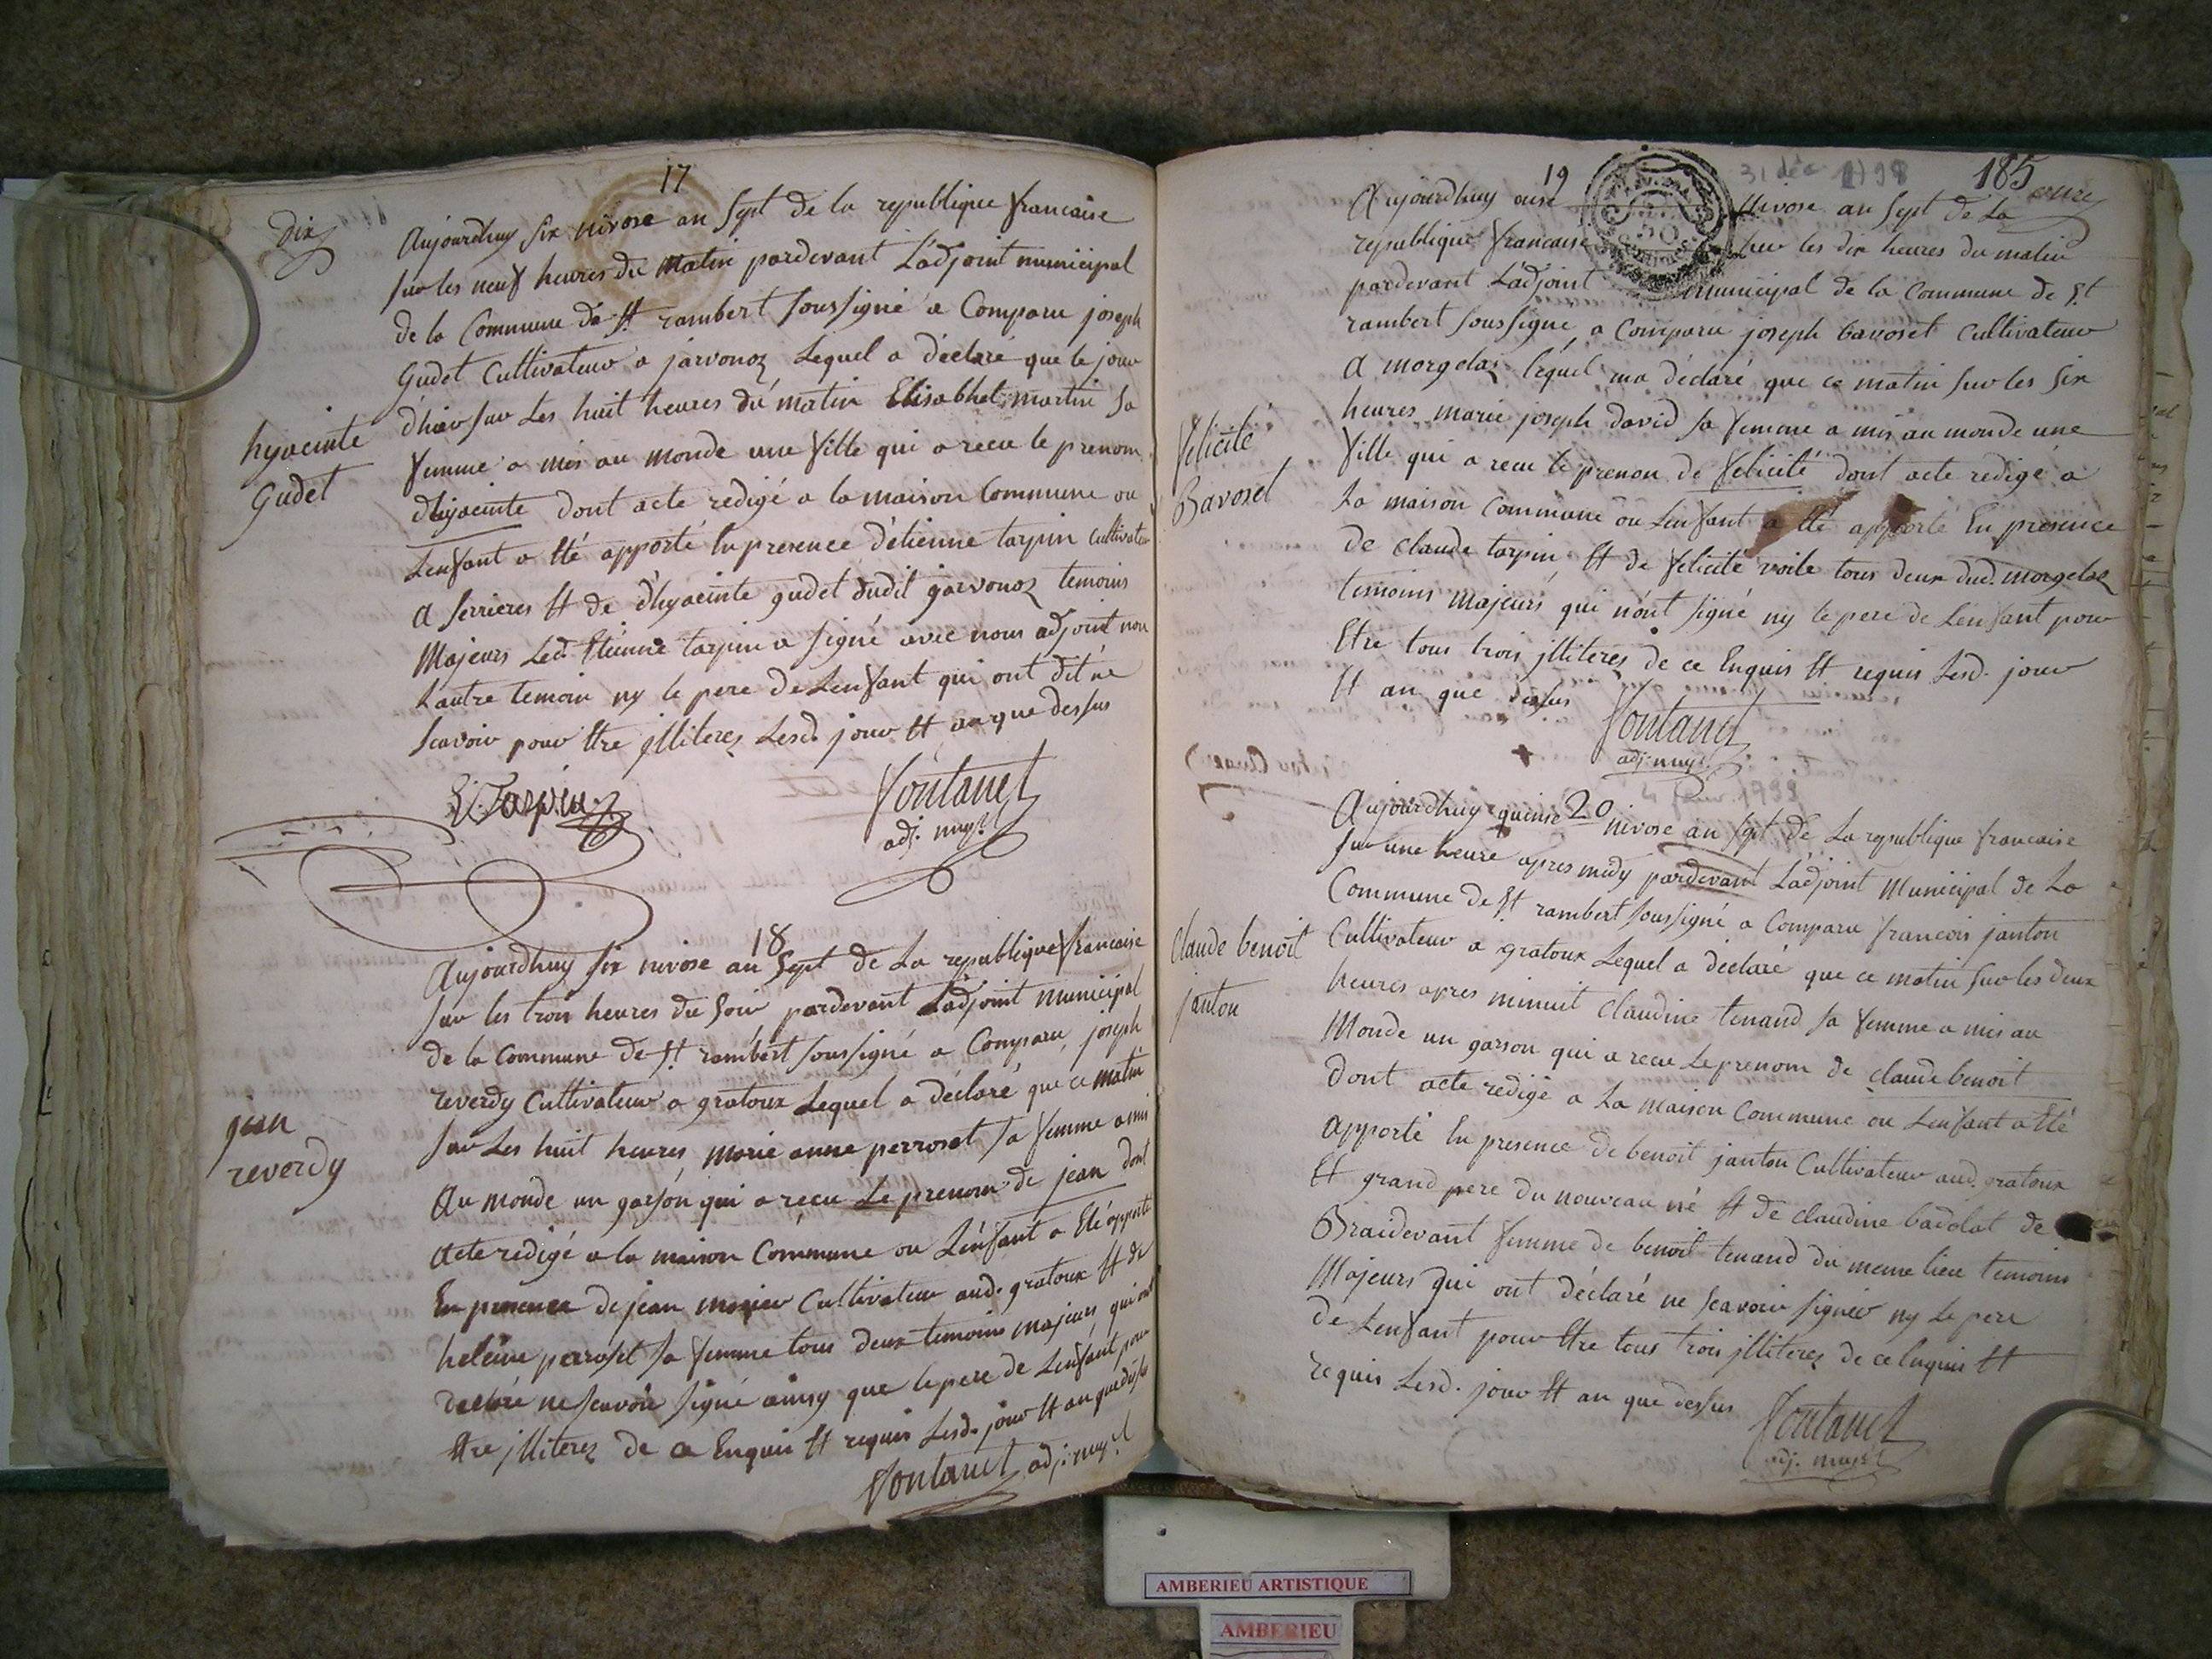 17
dix
Aujourdhuy six nivose an sept de la republique francaise
sur les neuf heures du matin pardevant L'adjoint municipal
de la Commune de St rambert soussigné a Comparu joseph
Gudet Cultivateur a jarvonoz Lequel a déclaré que le jour
d'hier sur Les huit heures du matin Elisabhet martin sa
femme a mis au monde une fille qui a recu le prenom
d'hyacinte dont acte redigé a la maison Commune ou
Lenfant a Eté apporté En presence d'etienne tarpin Cultivateur
a serrieres Et de d'hyacinte gudet dudit jarvonoz temoins
Majeurs Led. Etienne tarpin a signé avec nous adjoint non
L'autre temoin ny le pere de Lenfant qui ont dit ne
scavoir pour Etre jlliterez Lesd. jour Et an que dessus
hyacinte
Gudet
E. Tarpin
Fontanet
adj. mupl
18
Aujourdhuy six nivose an sept de La republique francaise
sur les trois heures du soir pardevant L'adjoint municipal
de la Commune de St rambert soussigné a Comparu joseph
reverdy Cultivateur a gratoux Lequel a déclaré que ce matin
sur Les huit heures marie anne perroset sa femme a mis
Au monde un garson qui a recu Le prenom de jean dont
Acte redigé a la maison Commune ou L'enfant a Eté apporté
En presence de jean Cultivateur aud. gratoux Et de
heleine perroset sa femme tous deux temoins majeurs qui ont
declaré ne scavoir signé ainsy que le pere de Lenfant pour
Etre jlliterez de ce Enquis Et requis Lesd. jour Et an que dessus
jean
reverdy
Fontanet adj. mupl
19
31 déc 1798
185
onze
Aujourdhuy onse nivose an sept de La
republique francaise sur les dix heures du matin
pardevant L'adjoint municipal de la Commune de St
rambert soussigné a Comparu joseph bavoset Cultivateur
a morgelas lequel ma déclaré que ce matin sur les six
heures marie joseph david sa femme a mis au monde une
fille qui a recu le prenon de felicité dont acte redigé a
La maison Commune ou Lenfant a Eté apporté En presence
de Claude tarpin Et de felicité voile tous deux dud. morgelas
temoins majeurs qui n'ont signé ny le pere de Lenfant pour
Etre tous trois jlliteres de ce Enquis Et requis Lesd. jour
Et an que dessus
felicité
Bavoset
Fontanet
adj. mupl
20
Aujourdhuy quinse nivose an sept de La republique francaise
sur une heure apres midy pardevant L'adjoint Municipal de La
Commune de St rambert soussigné a Comparu francois janton
Cultivateur a gratoux Lequel a déclaré que ce matin sur les deux
heures apres minuit Claudine tenand sa femme a mis au
Monde un garson qui a recu Le prenom de claude benoit
dont acte redigé a La maison Commune ou Lenfant a Eté
Apporté En presence de benoit janton Cultivateur aud. gratoux
Et grand pere du nouveau né Et de claudine badolat de
Braidevant femme de benoit tenand du meme lieu temoins
Majeurs qui ont déclaré ne scavoir signer ny Le pere
de Lenfant pour Etre tous trois jlliterez de ce Enquis Et
requis Lesd. jour Et an que dessus
claude benoit
janton
Fontanet
adj. mupl
AMBERIEU ARTISTIQUE
AMBERIEU